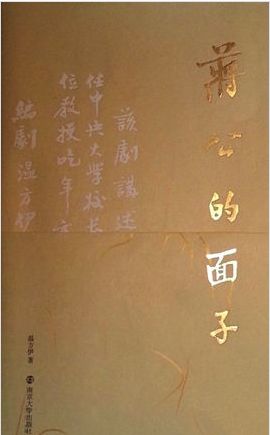 蒋公的面子
該劇講述
任中央大學校長
位教授吃年夜
編劇温方伊
温方伊 著
南京大学出版社